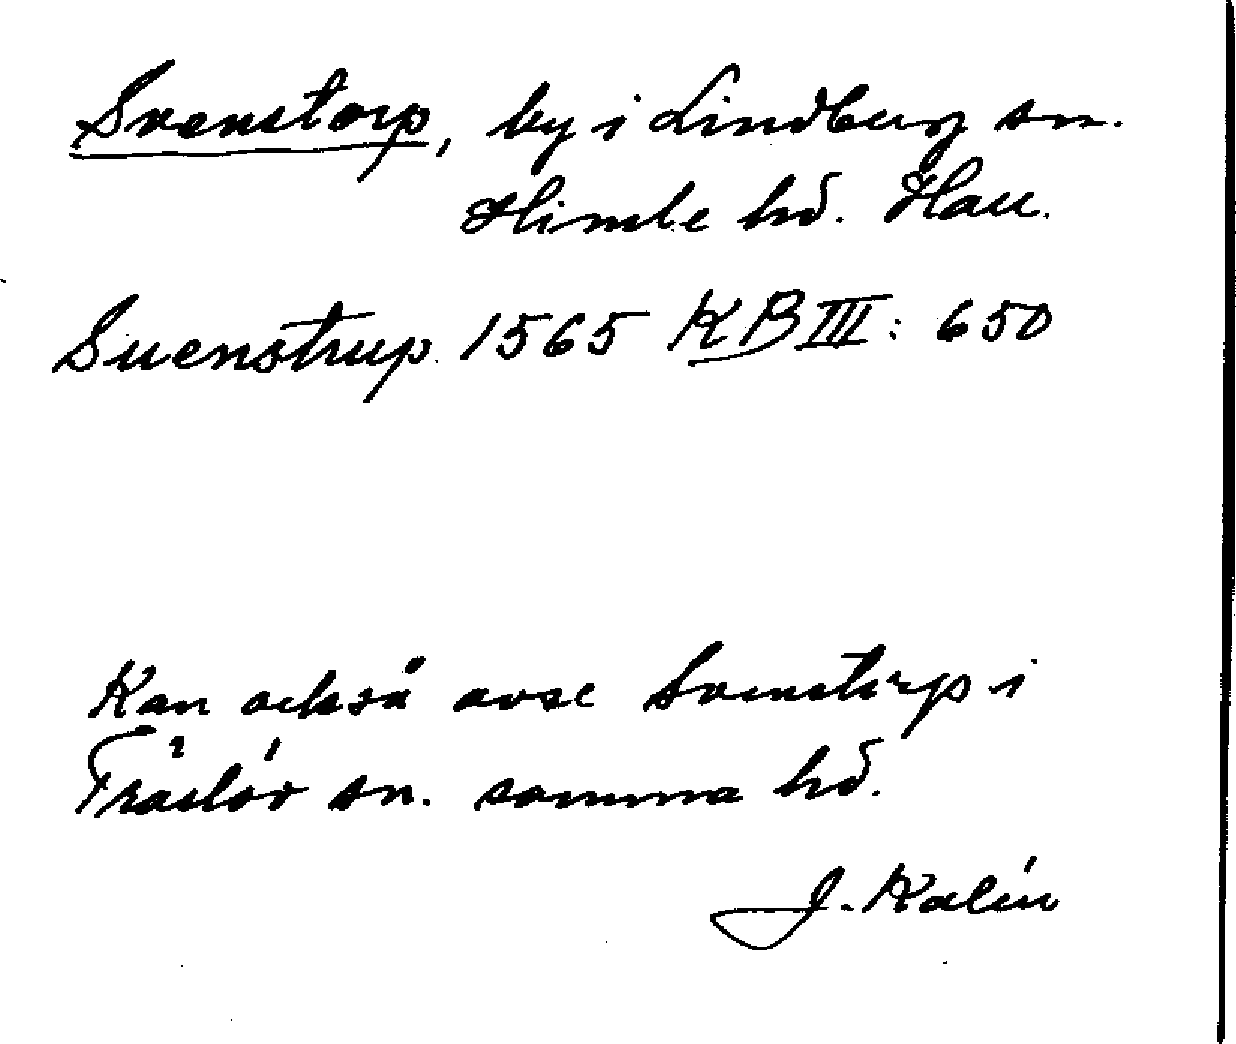 Svenstorp, by i Lindberg sn.
Himle hd. Hall.
Suenstrup 1565 KB III: 650
Kan också avse Svenstorp i
Träslöv sn. samma hd.
J. Kalén